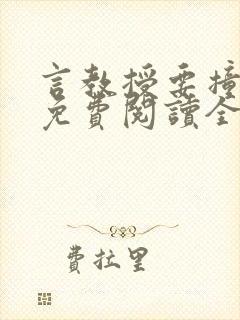 言教授要撞
免費閱讀全
費拉里